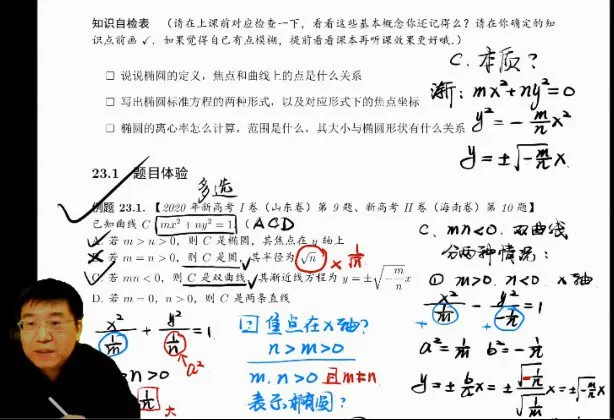 知识自检表 (请在上课前对应检查一下，看看这些基本概念你还记得么？请在你确定的知
识点前画✓. 如果觉得自己有点模糊，提前看看课本再听课效果更好哦.)
□ 说说椭圆的定义，焦点和曲线上的点是什么关系
□ 写出椭圆标准方程的两种形式，以及对应形式下的焦点坐标
□ 椭圆的离心率怎么计算，范围是什么，其大小与椭圆形状有什么关系
C. 本质？
渐: mx²+ny²=0
y²=-m/n x²
y=±√(-m/n) x
23.1 题目体验
多选
例题 23.1. 【2020 年新高考 I 卷（山东卷）第 9 题、新高考 II 卷（海南卷）第 10 题】
已知曲线 C mx²+ny²=1. (ACD
A. 若 m>n>0, 则 C 是椭圆，其焦点在 y 轴上
B. 若 m=n>0, 则 C 是圆，其半径为 √n × 1/√n
C. 若 mn<0, 则 C 是双曲线，其渐近线方程为 y=±√(-m/n) x
D. 若 m=0, n>0, 则 C 是两条直线
x²/(1/m) + y²/(1/n) =1
a²
n>0
1/n 大
焦点在x轴?
n>m>0
m.n>0 且m≠n
表示椭圆?
C. mn<0. 双曲线
分两种情况:
① m>0. n<0 x轴
x²/(1/m) - y²/(-1/n) =1
+ +
a²=1/m b²=-1/n
y=±b/a x=±√(-1/n)/√(1/m) x=±√(-m/n) x